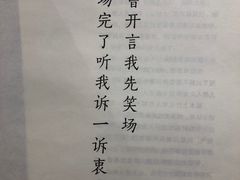 曾开言我先笑场
场完了听我诉一诉衷